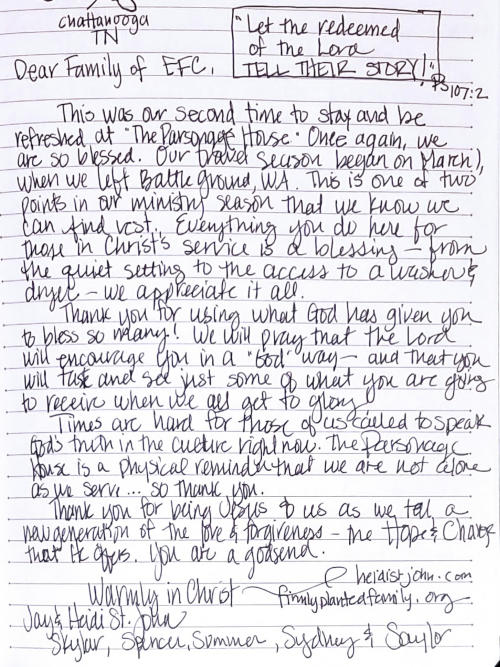 chattanooga
TN
"Let the redeemed
of the Lord
TELL THEIR STORY!"
PS 107:2
Dear Family of EFC,
This was our second time to stay and be
refreshed at "The Parsonage House." Once again, we
are so blessed. Our travel season began on March 1,
when we left Battle Ground, WA. This is one of two
points in our ministry season that we know we
can find rest. Everything you do here for
those in Christ's service is a blessing - from
the quiet setting to the access to a washer &
dryer - we appreciate it all.
Thank you for using what God has given you
to bless so many! We will pray that the Lord
will encourage you in a "God" way - and that you
will taste and see just some of what you are going
to receive when we all get to glory.
Times are hard for those of us called to speak
God's truth in the culture right now. The Parsonage
House is a physical reminder that we are not alone
as we serve... so thank you.
Thank you for being Jesus to us as we tell a
new generation of the love & forgiveness - the Hope & Change
that He offers. You are a godsend.
Warmly in Christ
heidistjohn.com
firmlyplantedfamily.org
Jay & Heidi St. John
Skylar, Spencer, Summer, Sydney & Saylor